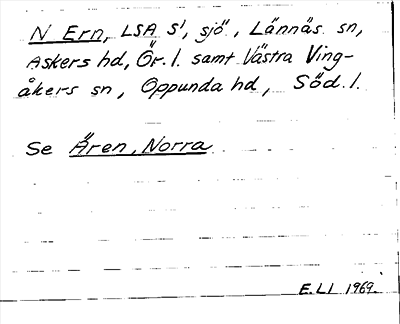 N Ern, LSA S', sjö, Lännäs sn,
Askers hd, Ör. l. samt Västra Ving-
åkers sn, Oppunda hd, Söd. l.
Se Ären, Norra
E.L1 1969.